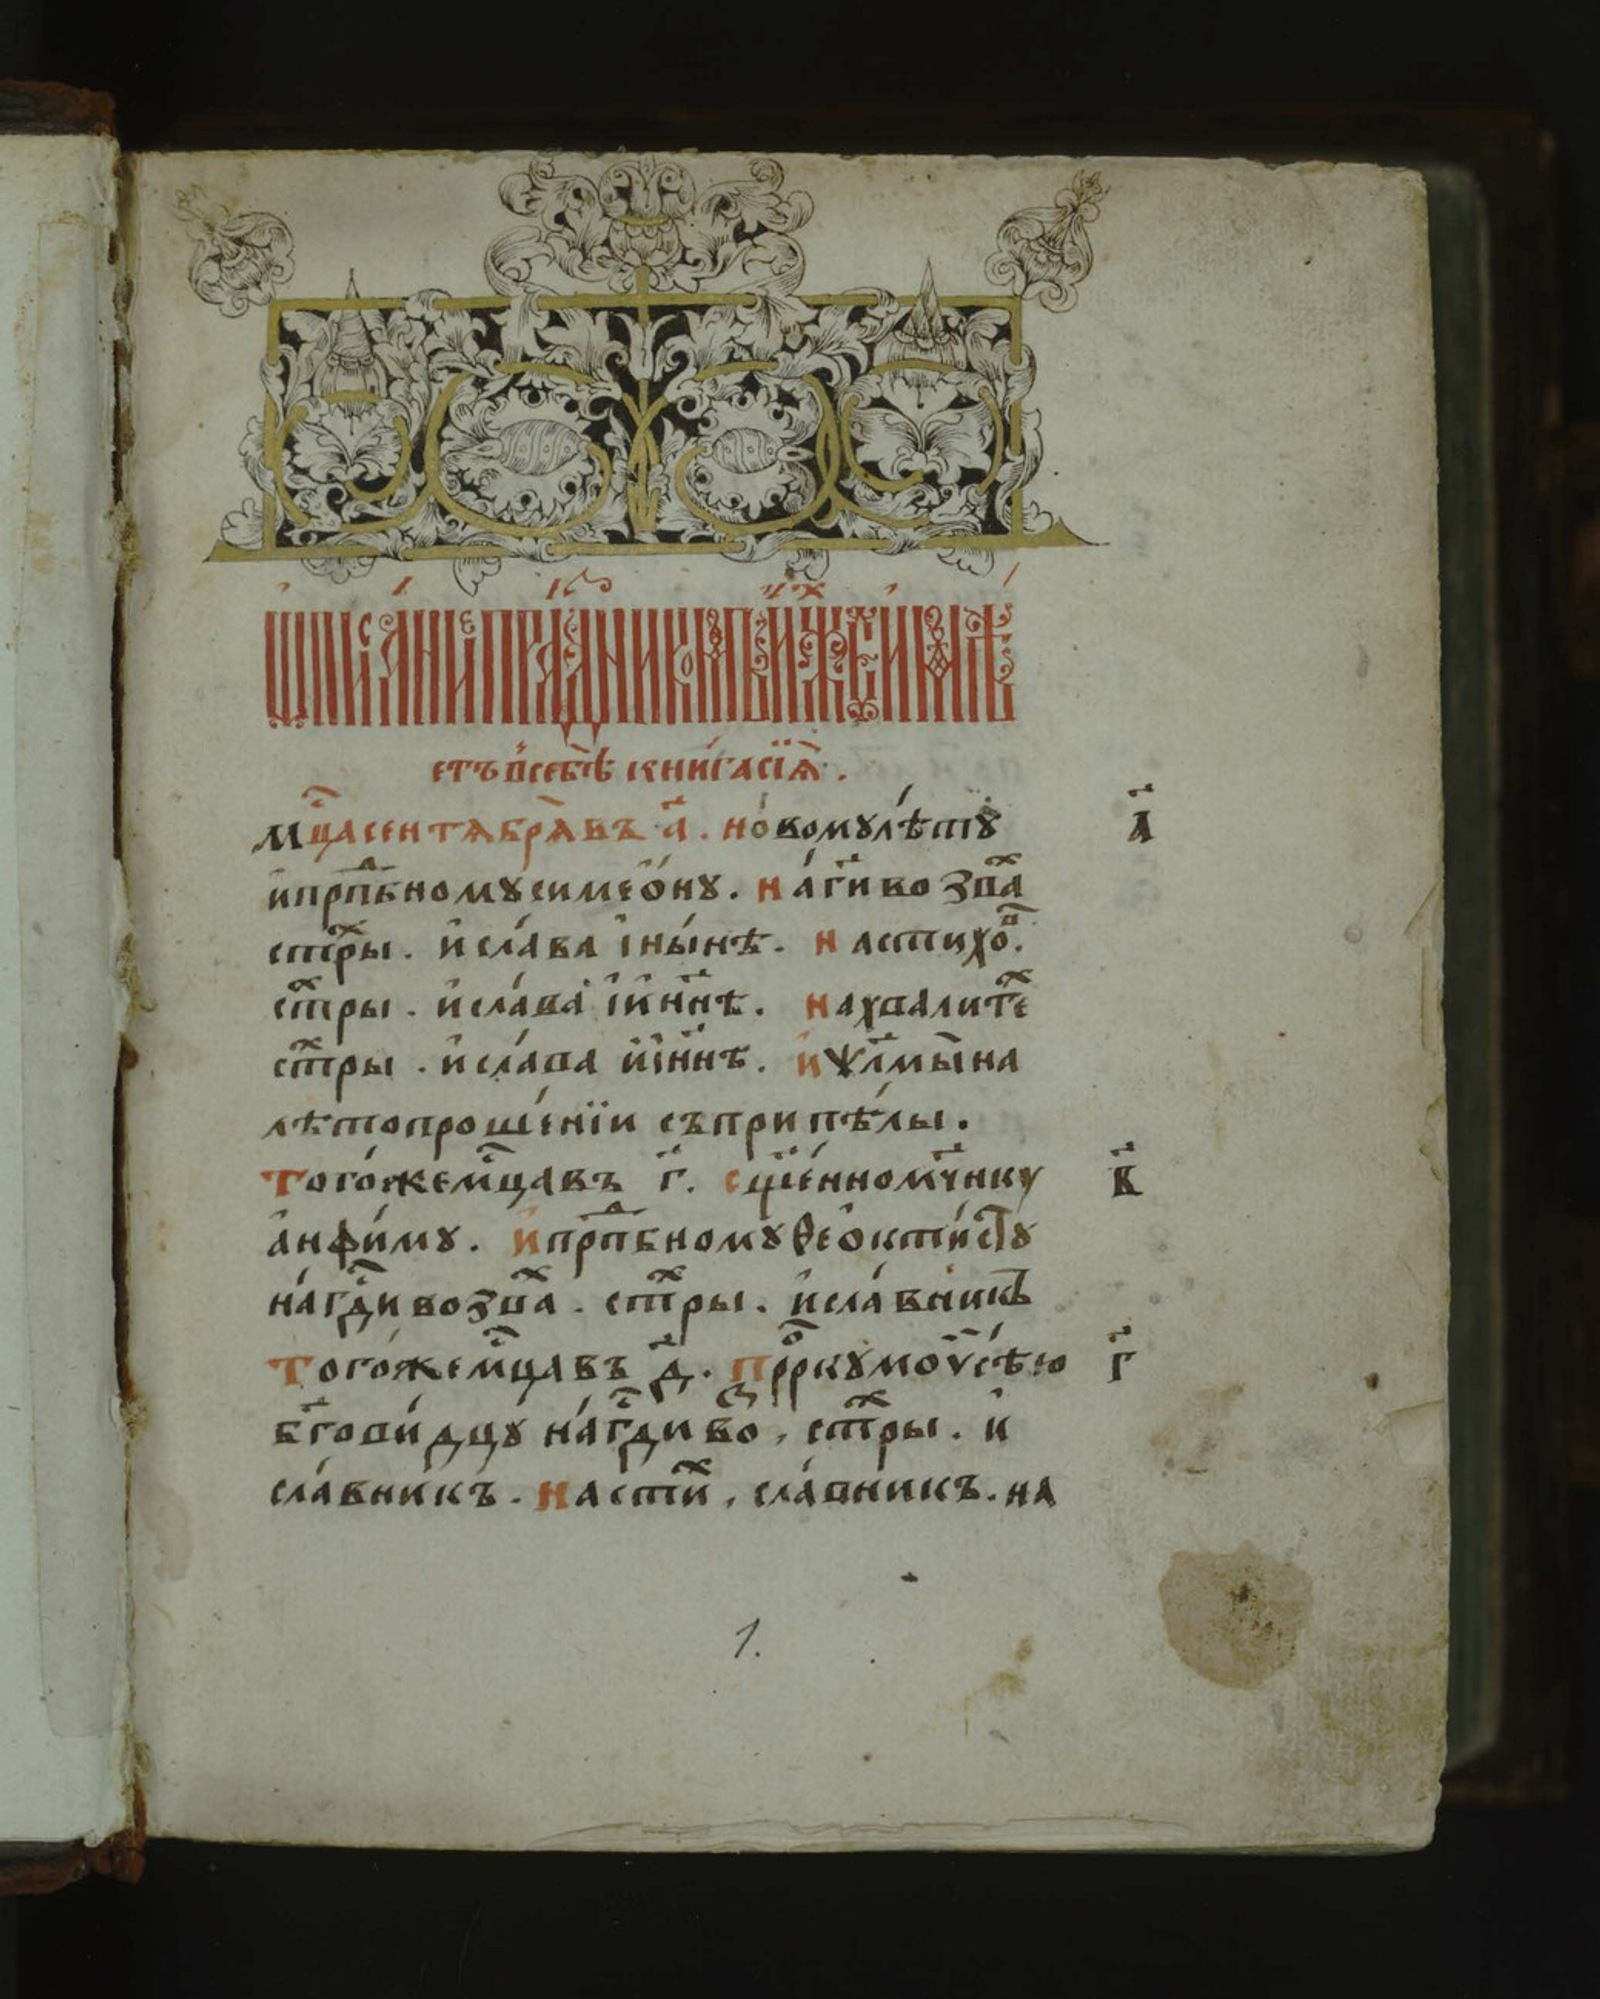 Ѡписа́нїе пра́здникомъ въ ни́хже и҆мѣ́
етъ в̾себѣ̀ кни́га сїѧ̀ .
мц҃а сентѧбрѧ̀ въ а҃ . но́вому лѣ́тꙋ а҃
и҆ прпⷣбному симео́нꙋ . на́ гⷭ҇и возваⷯ
стⷯры . и҆ сла́ва і҆ ны́нѣ . на стихоⷡ .
стⷯры . и҆ сла́ва і҆ нн҃ѣ . на хвалитеⷯ
стⷯры . и҆ сла́ва и҆ нн҃ѣ . и҆ ѱлмы̀ на
лѣтопроше́нїи съ припѣ́лы .
Того́же мц҃а въ г҃ . сщ҃е́нномч҃нку в҃
а҆нѳи́му . и҆ прпⷣбному ѳео҆кти́стꙋ
на́ гдⷭ҇и возваⷯ . стⷯры . и҆ сла́вникъ
Того́же мц҃а въ д҃ . прⷪ҇рку моѵсе́ю г҃
бг҃ови́дцꙋ на́ гдⷭ҇и воⷥ , стⷯры . и҆
сла́вникъ . на стиⷯ , сла́вникъ . на
1.